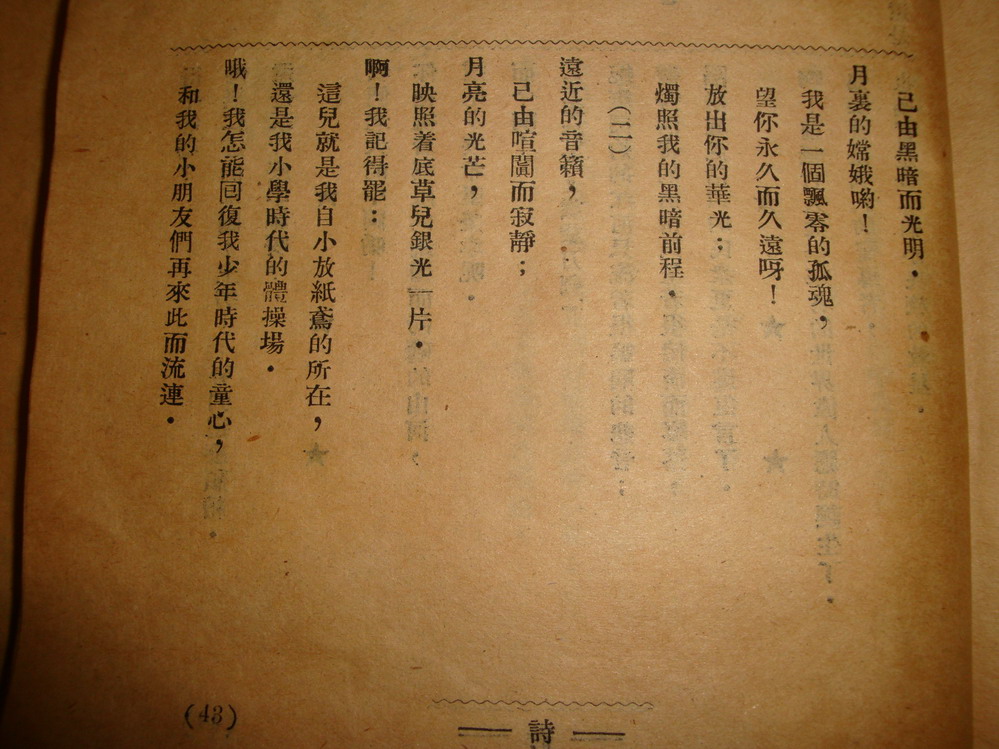 已由黑暗而光明．
月裏的嫦娥喲！
我是一個飄零的孤魂，
望你永久而久遠呀！
放出你的華光；
燭照我的黑暗前程．
（二）
遠近的音籟，
已由喧闐而寂靜；
月亮的光芒，
映照着底草兒銀光一片．
啊！我記得罷：
這兒就是我自小放紙鳶的所在，
還是我小學時代的體操場．
哦！我怎能回復我少年時代的童心，
和我的小朋友們再來此而流連．
(43)
詩